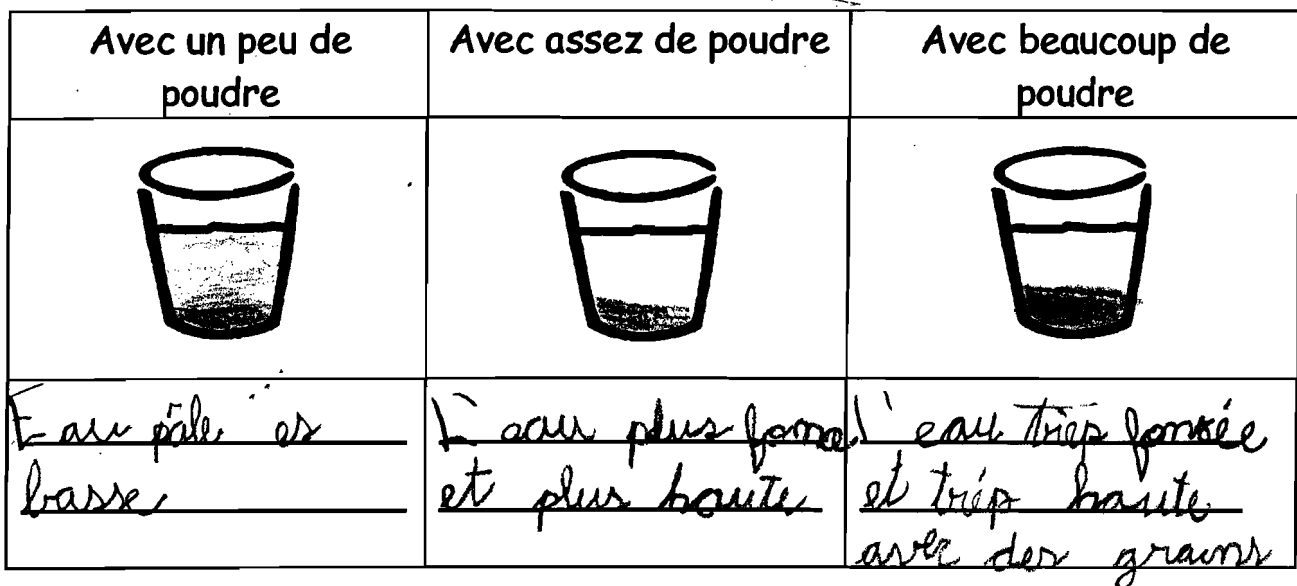 Avec un peu de
poudre
Avec assez de poudre
Avec beaucoup de
poudre
Eau pâle es
basse
L'eau plus foncé
et plus haute
l'eau trép fonsée
et trép haute
avec des grains